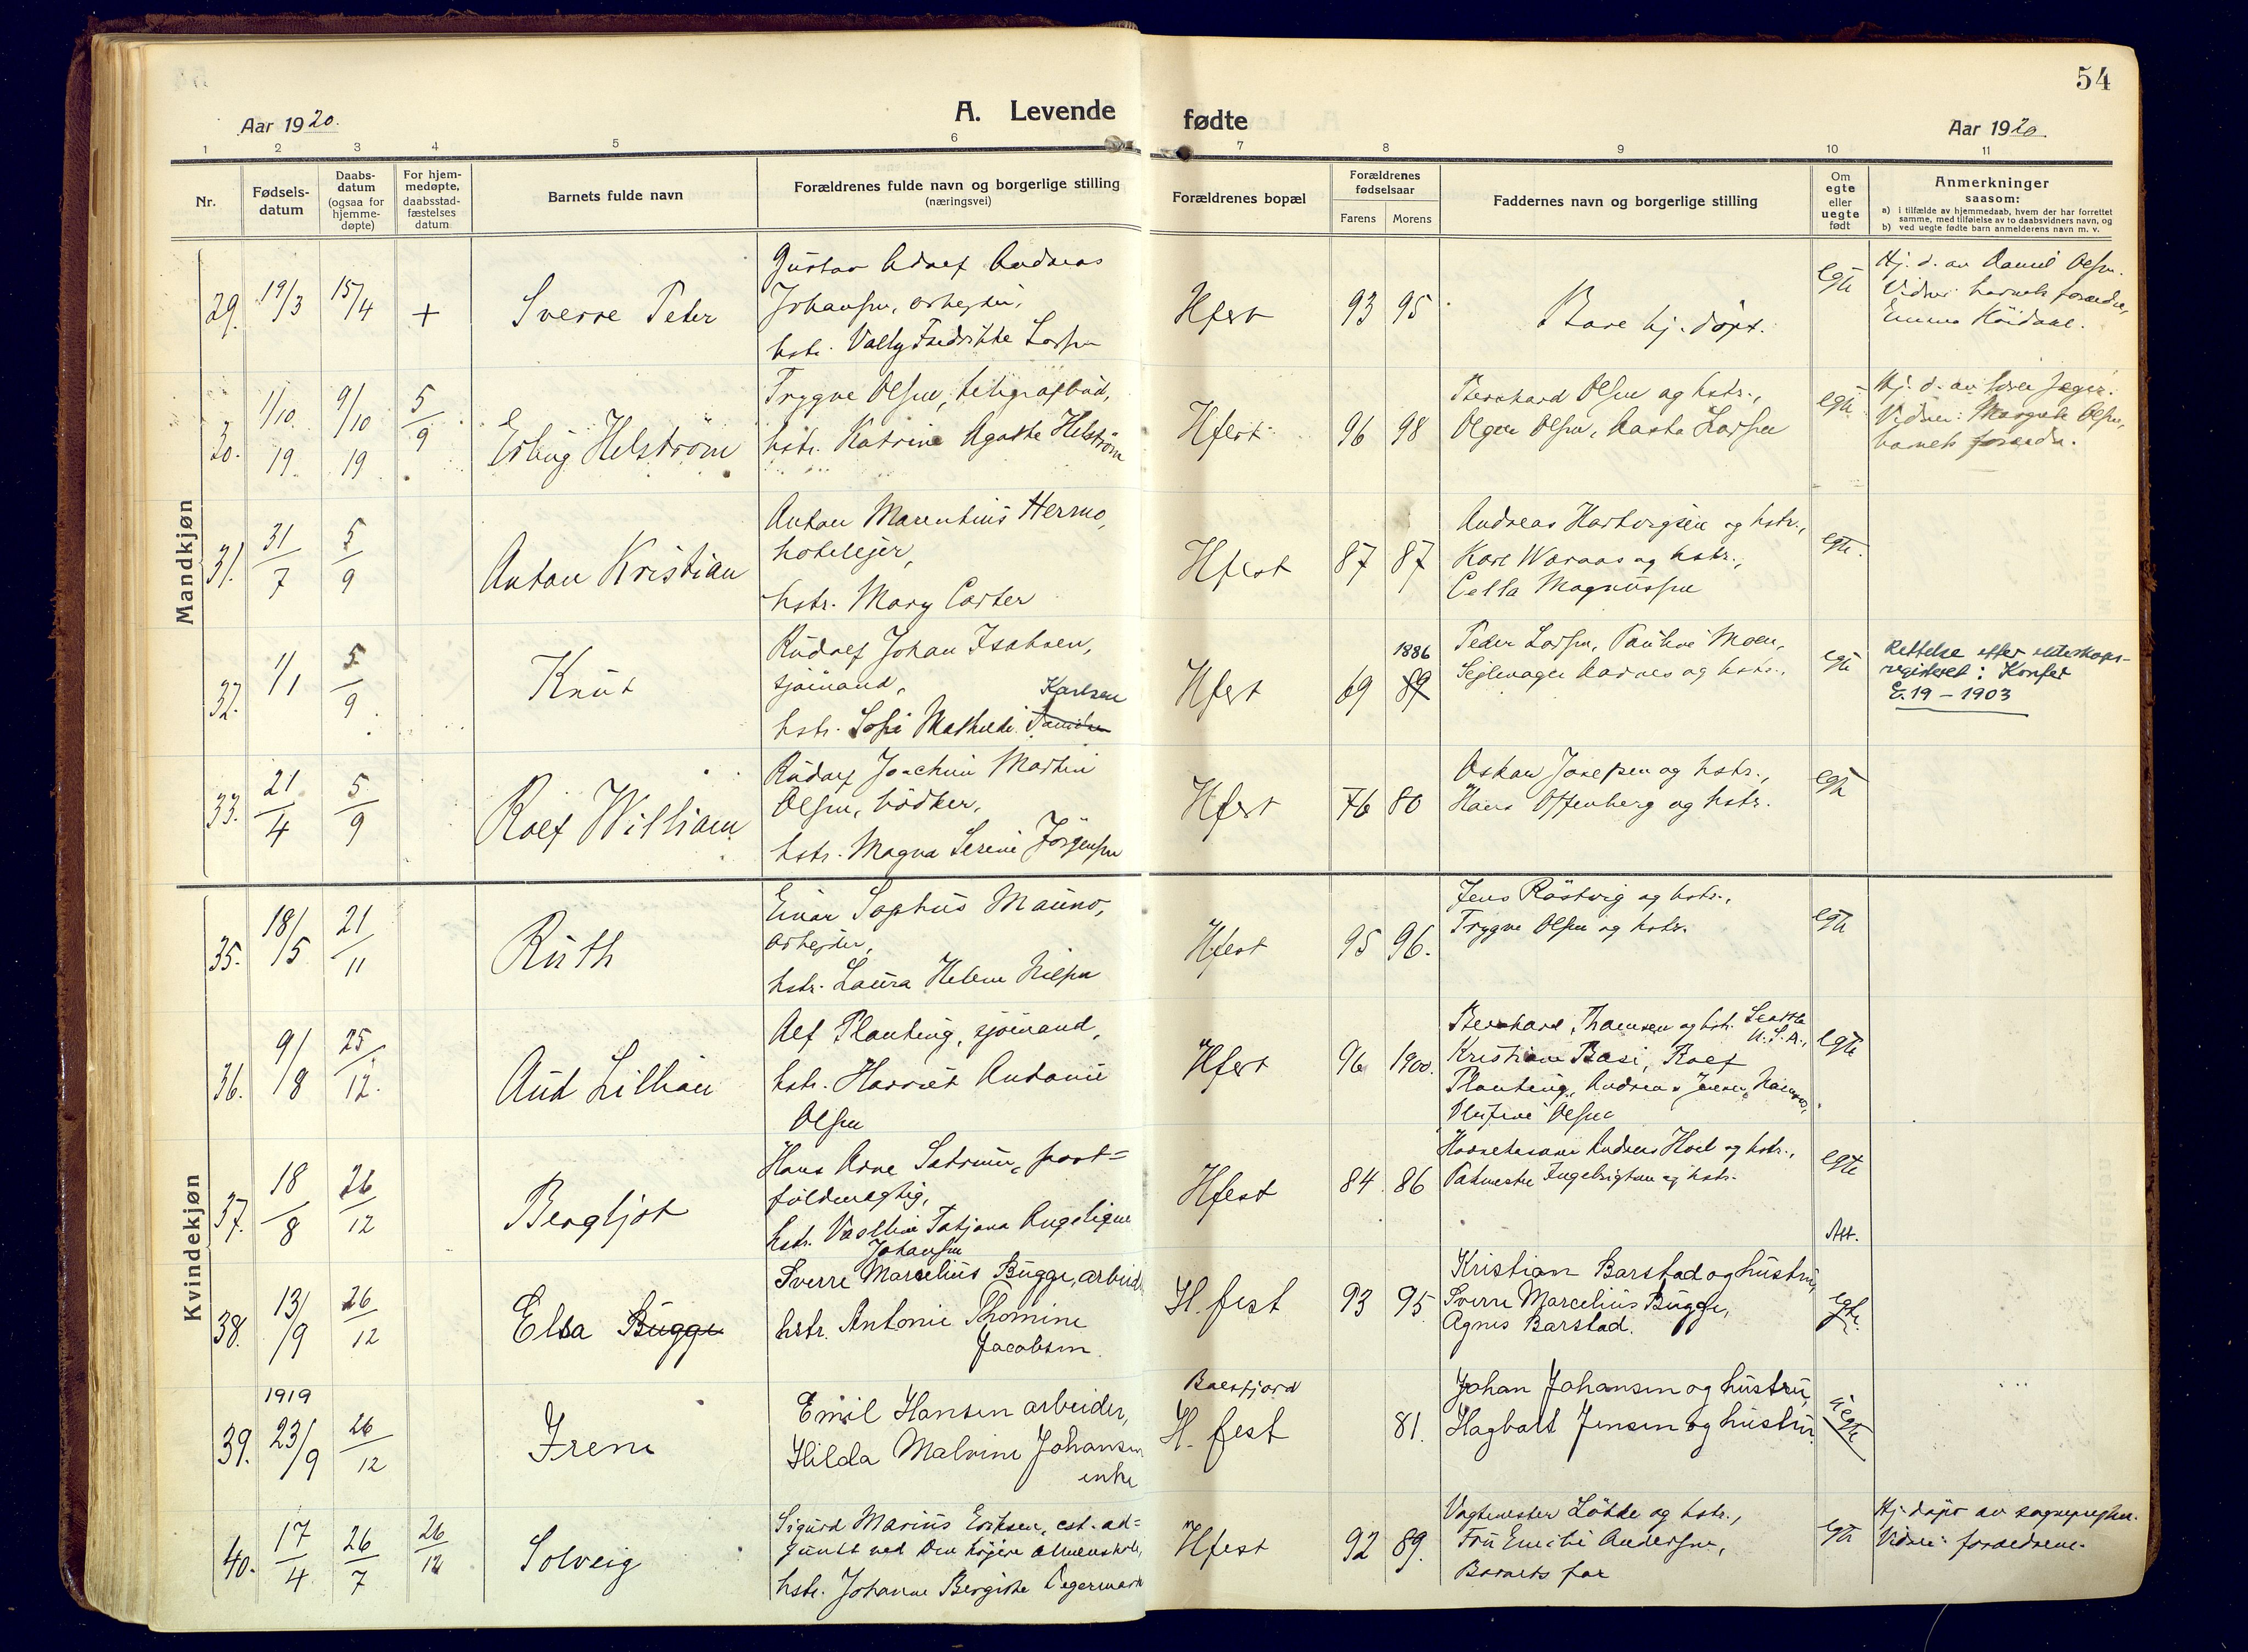 54
Aar 1920.
A. Levende fødte
Aar 1920.
1 2 3 4 5 6 7 8 9 10 11
Nr.
Fødsels-
datum
Daabs-
datum
(ogsaa for
hjemme-
døpte)
For hjem-
medøpte,
daabsstad-
fæstelses
datum
Barnets fulde navn
Forældrenes fulde navn og borgerlige stilling
(næringsvei)
Forældrenes bopæl
Forældrenes
fødselsaar
Farens Morens
Faddernes navn og borgerlige stilling
Om
egte
eller
uegte
født
Anmerkninger
saasom:
a) i tilfælde av hjemmedaab, hvem der har forrettet
samme, med tilføielse av to daabsvidners navn, og
b) ved uegte fødte barn anmelderens navn m. v.
Mandkjøn
29. 19/3 15/4 + Sverre Peter
Gustav Adolf Andreas
Johansen, arbejder,
hstr. Vally Fredrikke Larsen
Hfest 93 95
Bare hj. døpt.
egte
Hj. d. av Daniel Olsen.
Vidner: barnets forældre,
Emma Höidahl.
30. 1/10 19. 9/10 19 5/9
Erling Helström
Trygve Olsen, telegrafbud,
hstr. Katrine Agathe Helström
Hfest 96 98
Bernhard Olsen og hstr.,
Olger Olsen, Aasta Larsen
egte
Hj. d. av
Vidner: Margrete Olsen,
barnets forældre.
31. 31/7 5/9 Anton Kristian
Anton Marentius Hermo,
hotelejer,
hstr. Mary Carter
Hfest 87 87
Andreas Hartvigsen og hstr.,
Karl Waraas og hstr.,
Cella Magnussen
egte.
32. 1/1 5/9 Knut
Rudolf Johan Isaksen,
sjömand, Karlsen
hstr. Sofie Mathilde
Hfest 69 1886 89
Peder Larsen, Pauline Moen,
Sejlmager Aarnes og hstr.,
egte
Rettelse efter ekteskaps-
registeret: Konfer
E. 19 – 1903
33. 21/4 5/9 Rolf William
Rudolf Joachim Martin
Olsen, bödker,
hstr. Magna Serine Jörgensen
Hfest 76 80
Oskar Josefsen og hstr.,
Hans Offenberg og hstr.
egte
Kvindekjøn
35. 18/5 21/11 Ruth
Einar Sophus Mauno,
arbejder,
hstr. Laura Helene Nilsen
Hfest 95 96.
Jens Röstvig og hstr.,
Trygve Olsen og hstr.
egte
36. 9/8 25/12. Aud Lillian
Alf Planting, sjömand,
hstr. Harriet Antonie
Olsen
Hfest 96 1900.
Bernhard Thomsen og hstr. Seattle
U.S.A.,
Kristian Basi, Rolf
Planting, Andrea Jensen,
Olufine Olsen
egte
37. 18/8 26/12 Bergljot
Hans Arne Satrum, post=
fuldmægtig,
hstr. Vasilie Tatjana Angelique
Johansen
Hfest 84. 86
Andreas Hoel og hstr.,
Ingebrigtsen og hstr.
egte
Att.
38. 13/9 26/12 Elsa Bugge
Sverre Marcelius Bugge, arbeid.
hstr. Antonie Thomine
Jacobsen.
H. fest 93 95.
Kristian Barstad og hustru,
Sverre Marcelius Bugge,
Agnes Barstad.
egte.
39. 1919 23/9 26/12 Irene
Emil Hansen arbeider,
Hilda Malvine Johansen
enke
Balsfjord
H. fest 81.
Johan Johansen og hustru,
Hagbart Jensen og hustru.
uegte
40. 17/4 26/7 26/12 Solveig
Sigurd Marius Eriksen, cst. ad=
junkt ved den höjere almenskole,
hstr. Johanne Bergithe Degermark
Hfest 92 89.
Vagtmester Lökke og hstr.,
Fru Emilie Andersen,
Barnets far
egte
Hj. døpt av sogneprasten.
Vidner: forældrene.